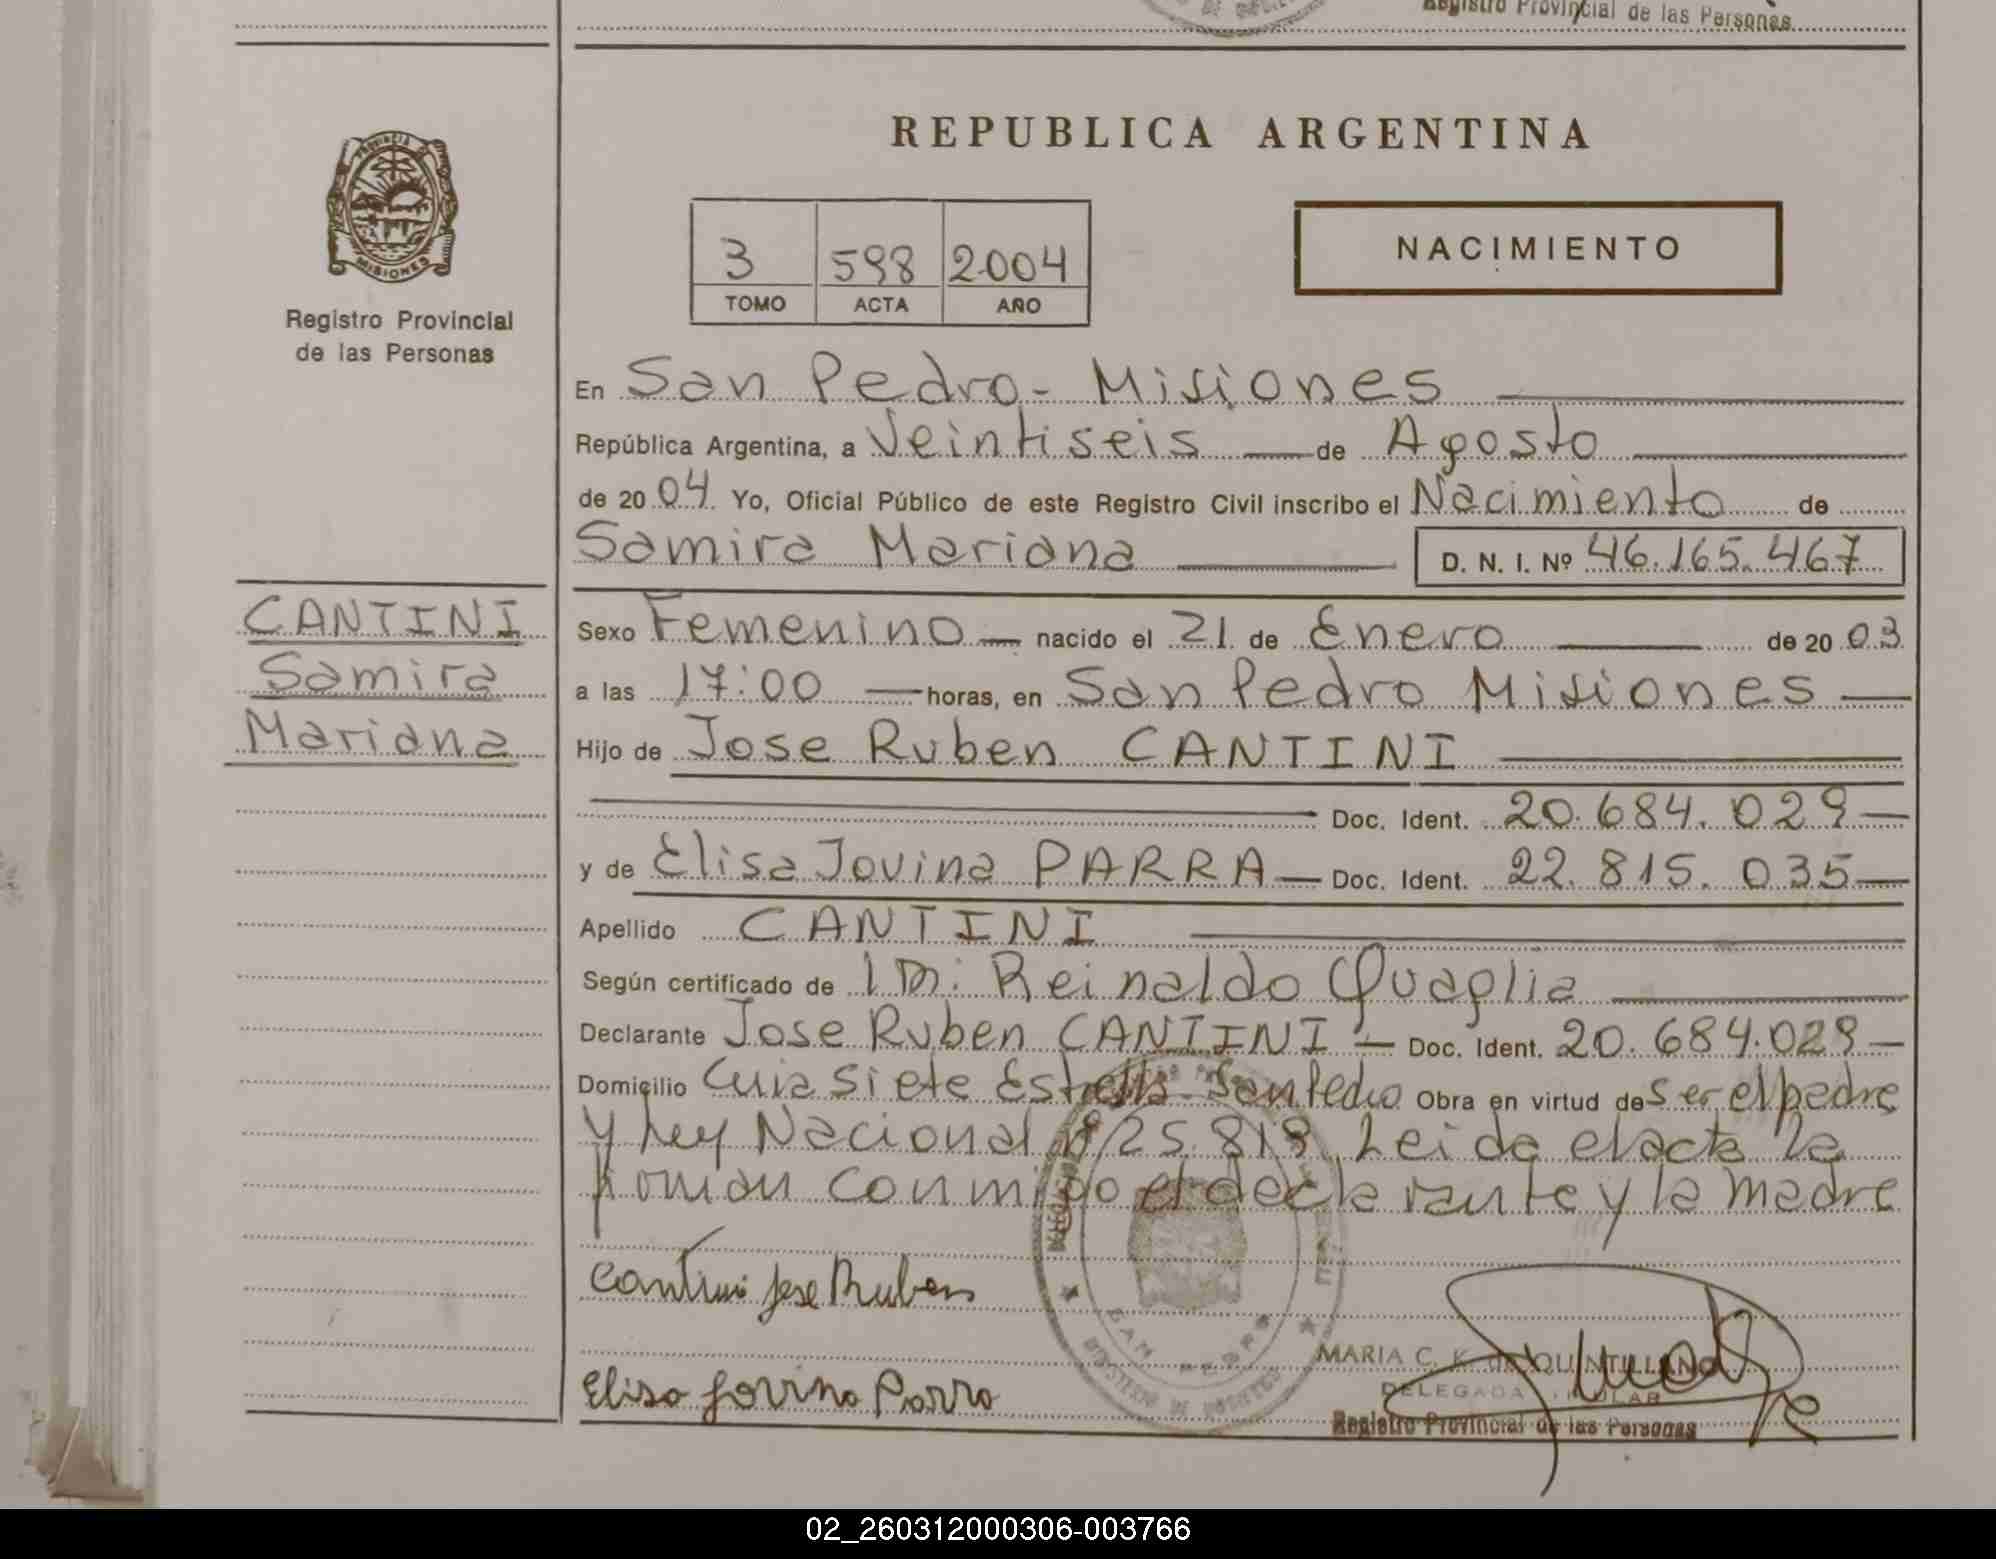 Registro Provincial de las Personas
REPUBLICA ARGENTINA
PROVINCIA DE
MISIONES
Registro Provincial
de las Personas
3 598 2004
TOMO ACTA AÑO
NACIMIENTO
En San Pedro - Misiones
República Argentina, a Veintiseis de Agosto
de 2004 Yo, Oficial Público de este Registro Civil inscribo el Nacimiento de
Samira Mariana D. N. I. Nº 46.165.467
CANTINI
Samira
Mariana
Sexo Femenino nacido el 21 de Enero de 2003
a las 17:00 horas, en San Pedro Misiones
Hijo de Jose Ruben CANTINI
Doc. Ident. 20.684.029
y de Elisa Jovina PARRA Doc. Ident. 22.815.035
Apellido CANTINI
Según certificado de Reinaldo Quaglia
Declarante Jose Ruben CANTINI Doc. Ident. 20.684.029
Domicilio Siete Estrella San Pedro Obra en virtud de ser el padre
y Ley Nacional Nº 25.819. Leida el acta la
firman conmigo el declarante y la madre
Cantini Jose Ruben
SAN PEDRO
MARIA C. K. de QUINTILLANO
DELEGADA TITULAR
Elisa Jovina Parra
Registro Provincial de las Personas
02_260312000306-003766